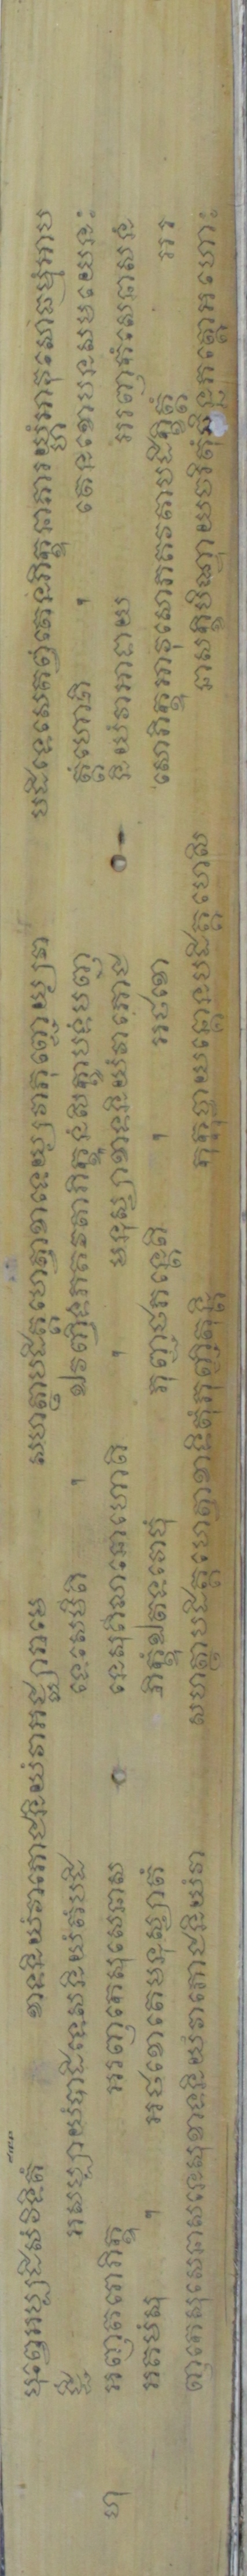 បុព្វេអប្បដិសំវិទិតំ ខាទនិយំវាភោជនិយំវាអជ្ឈារាមេ សហត្ថាបដិគ្គហេត្វាខាទេយ្យវាភុញ្ជេយ្យវា បដិទេសេតព្វំតេនភិក្ខុនាគារយ្ហំអាវុសោធម្មំអាប
ជ្ជឹ អសប្បាយំបាដិទេសនិយំតំបដិ ទេសេមីតិ ។ ឯវញ្ចិទំភគវតាភិក្ខូនំសិក្ខាបទំបញ្ញ ត្តំហោតិ ។ តេនខោបនសមយេនៈ
ហុ អញ្ញតរោភិក្ខុ អរញ្ញកេសុសេនាស នេសុគិលានោហោតិ ។ មនុស្សាខាទនិយំវាភោជ និយំវាអាទាយ អរញ្ញកំសេនាសនំ
អគមំសុ ។ អថខោតេមនុស្សាតំ ភិក្ខុំឯតទវោចុំ ភុញ្ជថភន្តេតិ ។ អថខោ សោភិក្ខុអាវុសោភគវតាបដិក្ខិត្តំ អរ
ញ្ញកេសុសេនាសនេសុខាទនិយំវាភោជនិយំវា សហត្ថាបដិគ្គហេត្វាខាទិតុំភុញ្ជិតុន្តិ កុក្កុច្ចាយន្តោនបដិគ្គហេសិ នាសក្ខិបិណ្ឌាយចរិតុំឆិន្នភត្តោអហោៈ